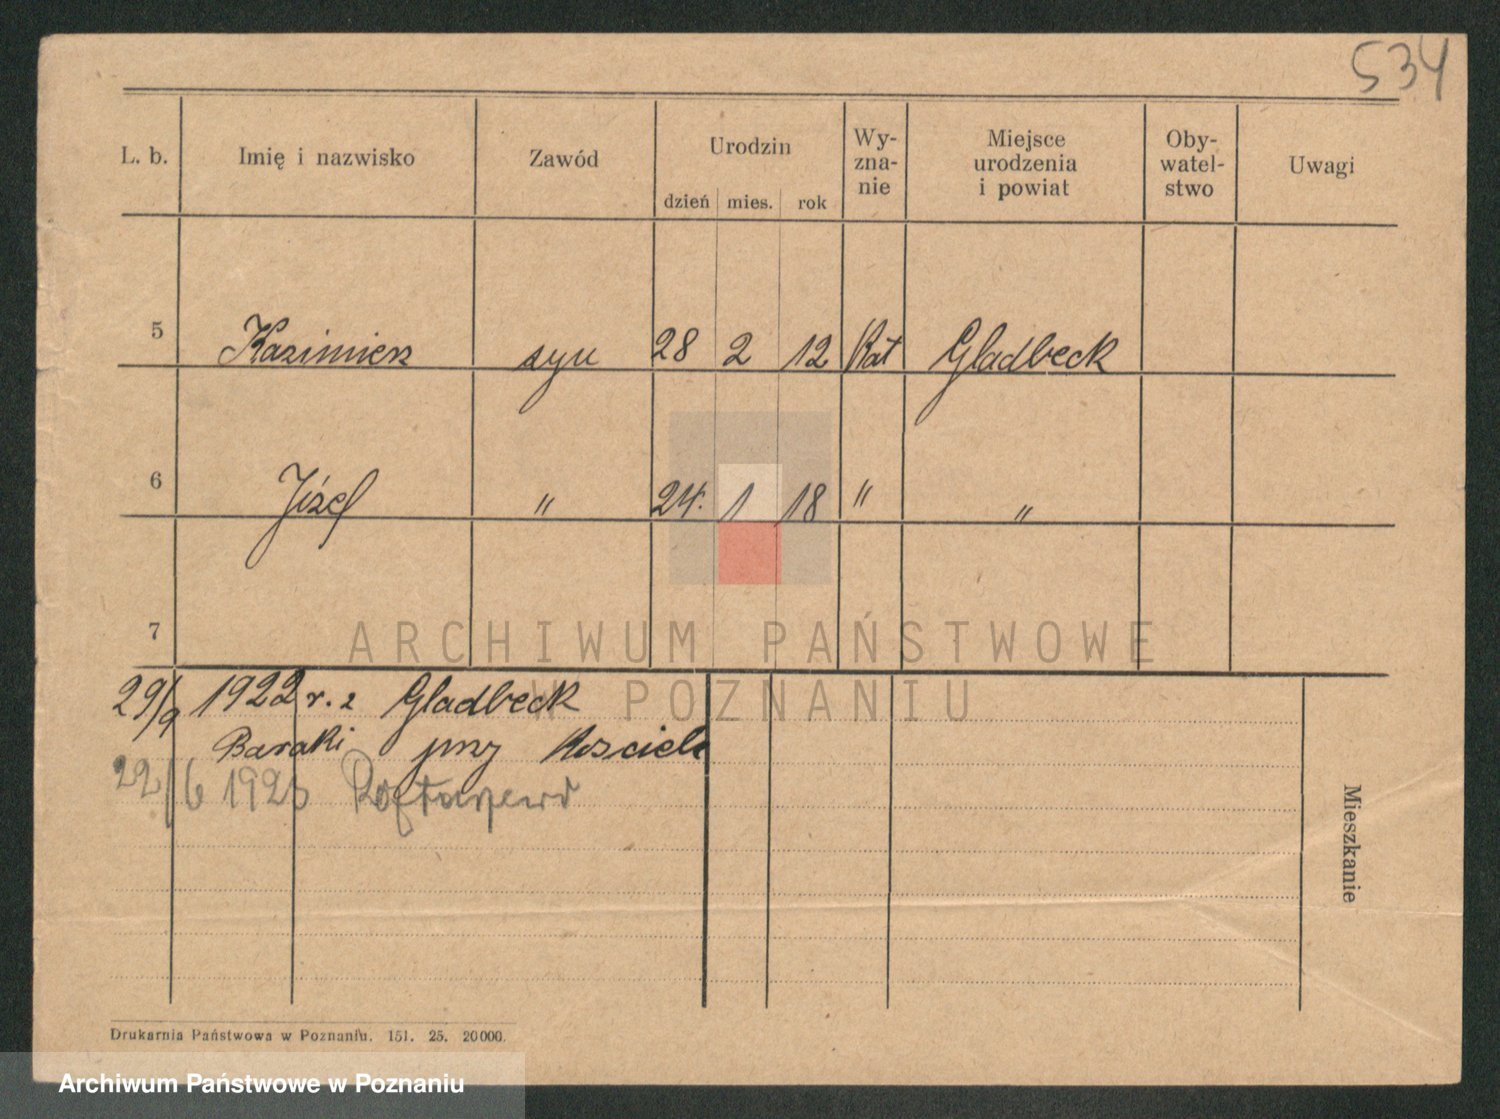 534
L. b. Imię i nazwisko Zawód Urodzin dzień mies. rok Wy-zna-nie Miejsce urodzenia i powiat Oby-watel-stwo Uwagi
5 Kazimierz syn 28 2 12 Kat Gladbeck
6 Józef " 24. 1 18 " "
7
ARCHIWUM PAŃSTWOWE
W POZNANIU
29/9 1922 r. z Gladbeck
Baraki przy Kosciele
22/6 192
Mieszkanie
Drukarnia Państwowa w Poznaniu. 151. 25. 20000.
Archiwum Państwowe w Poznaniu